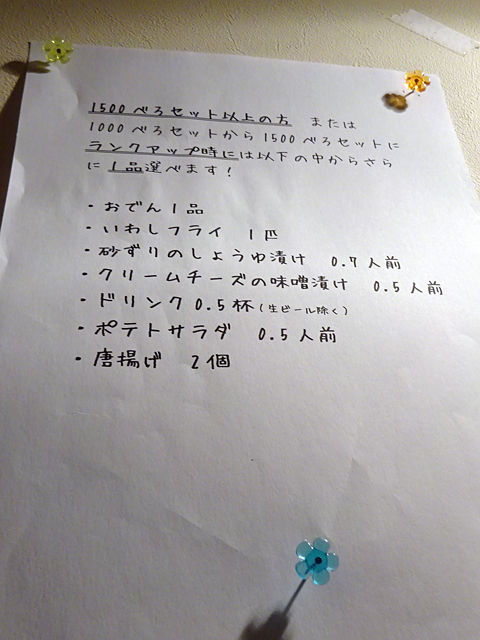 1500べろセット以上の方 または
1000べろセットから1500べろセットに
ランクアップ時には以下の中からさら
に1品選べます!
・おでん1品
・いわしフライ 1匹
・砂ずりのしょうゆ漬け 0.7人前
・クリームチーズの味噌漬け 0.5人前
・ドリンク0.5杯(生ビール除く)
・ポテトサラダ 0.5人前
・唐揚げ 2個